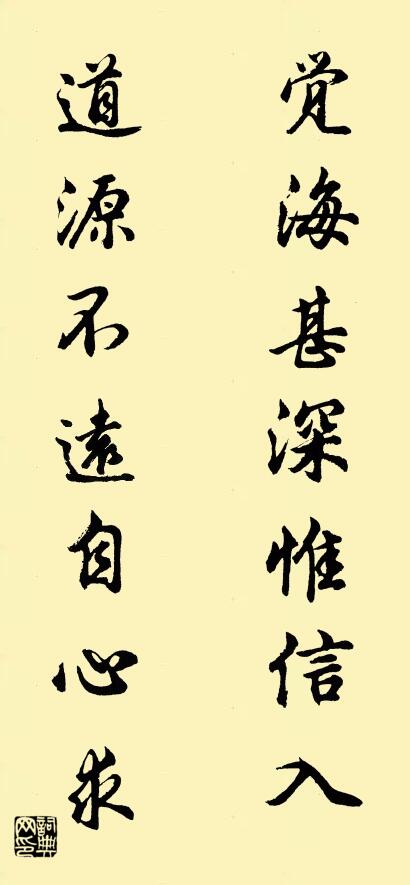 觉海甚深惟信入
道源不遠自心求
詞典网印